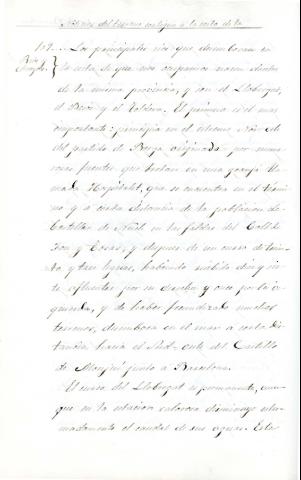 Noticia del terreno contiguo a la costa de la
102. Los principales rios que desembocan en
Rios principales
la costa de que nos ocupamos nacen dentro
de la misma provincia, y son el Llobregat,
el Besós y el Tordera. El primero es el mas
importante: principia en el estremo Nor-este
del partido de Berga originado por nume-
rosas fuentes que brotan en una garganta lla-
mada Hospitalet, que se encuentra en el térmi-
no y a corta distancia de la poblacion de
Castellar de Nuch en las faldas del Coll de
y despues de un curso de trein-
ta y tres leguas, habiendo recibido diez y sie-
te afluentes por su derecha y once por la iz-
quierda, y de haber fecundizado muchos
terrenos, desemboca en el mar a corta dis-
tancia hacia el Sud-oeste del Castillo
de Monjuí junto a Barcelona.
El curso del Llobregat es permanente, aun-
que en la estacion calorosa disminuye estre-
madamente el caudal de sus aguas. Este